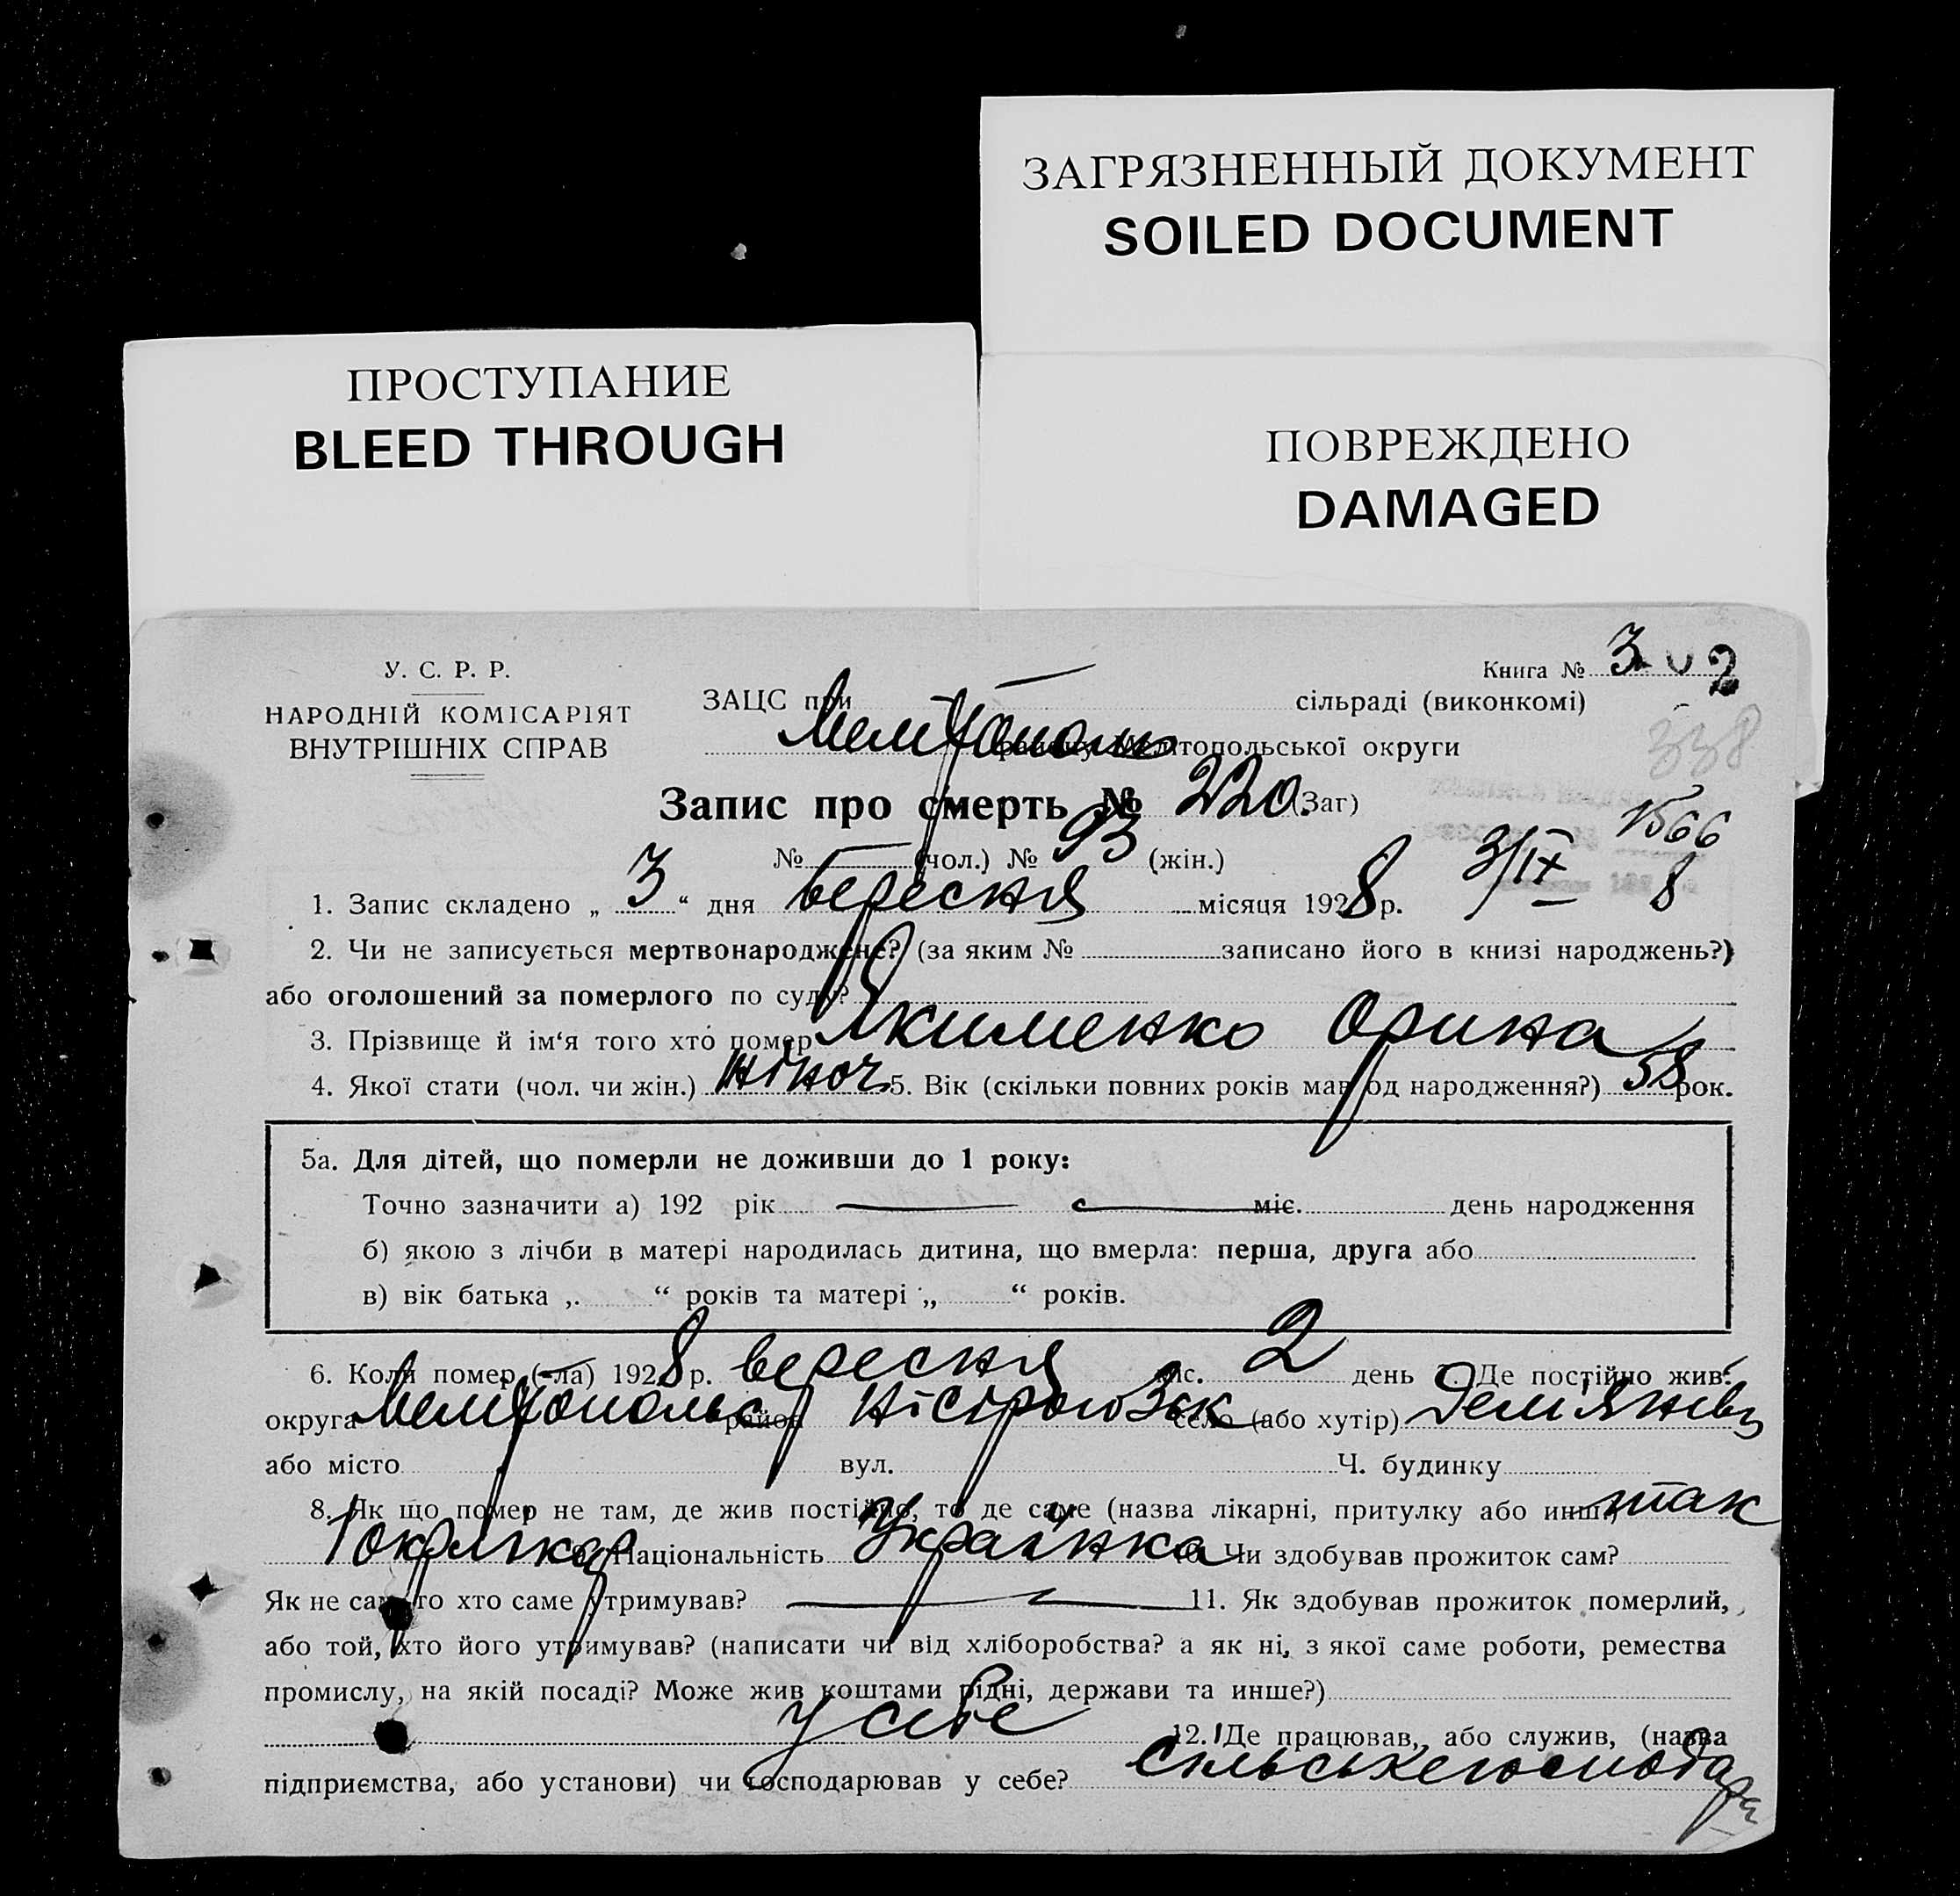 ЗАГРЯЗНЕННЫЙ ДОКУМЕНТ
SOILED DOCUMENT
ПРОСТУПАНИЕ
BLEED THROUGH
ПОВРЕЖДЕНО
DAMAGED
У. С. Р. Р.
НАРОДНІЙ КОМІСАРІЯТ
ВНУТРІШНІХ СПРАВ
Книга № 3 2
ЗАЦС при сільраді (виконкомі)
району Мелітопольської округи
338
Запис про смерть № 220 (Заг)
1566
№ — (чол.) № 93 (жін.)
3/IX 8
1. Запис складено „ 3 “ дня вересня місяця 1928 р.
2. Чи не записується мертвонароджене? (за яким № записано його в книзі народжень?)
або оголошений за померлого по суду?
3. Прізвище й ім‘я того хто помер Якименко Орина
4. Якої стати (чол. чи жін.) жіноч. 5. Вік (скільки повних років мав од народження?) 58 рок.
5а. Для дітей, що померли не доживши до 1 року:
Точно зазначити а) 192 рік — міс. день народження
б) якою з лічби в матері народилась дитина, що вмерла: перша, друга або
в) вік батька „ “ років та матері „ “ років.
6. Коли помер (-ла) 1928 р. вересня міс. 2 день 7. Де постійно жив:
округа район село (або хутір)
або місто вул. Ч. будинку
8. Як що помер не там, де жив постійно, то де саме (назва лікарні, притулку або инш.) так
Національність Українка 10. Чи здобував прожиток сам?
Як не сам то хто саме утримував? — 11. Як здобував прожиток померлий,
або той, хто його утримував? (написати чи від хліборобства? а як ні, з якої саме роботи, ремества
промислу, на якій посаді? Може жив коштами рідні, держави та инше?)
у себе 12. Де працював, або служив, (назва
підприємства, або установи) чи господарював у себе?